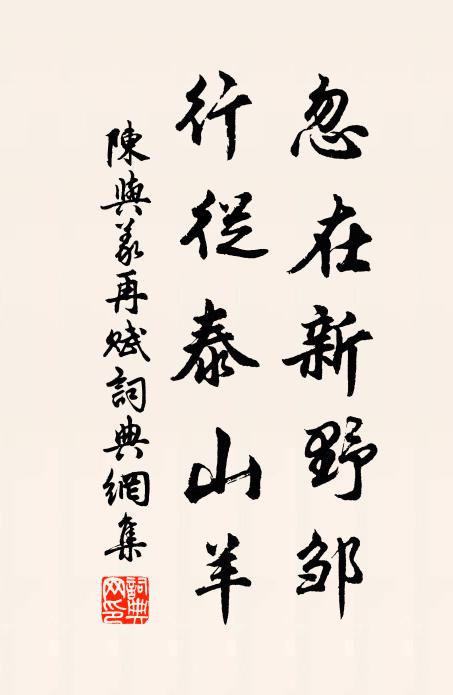 忽在新野邹
行從泰山羊
陳與義再赋詞典網集
詞典网印